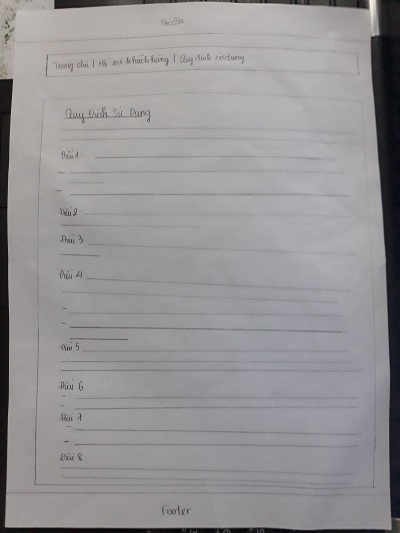 Header
Trang chủ | Hồ sơ khách hàng | Quy định sử dụng
Quy Định Sử Dụng
Điều 1
Điều 2
Điều 3
Điều 4
Điều 5
Điều 6
Điều 7
Điều 8
Footer